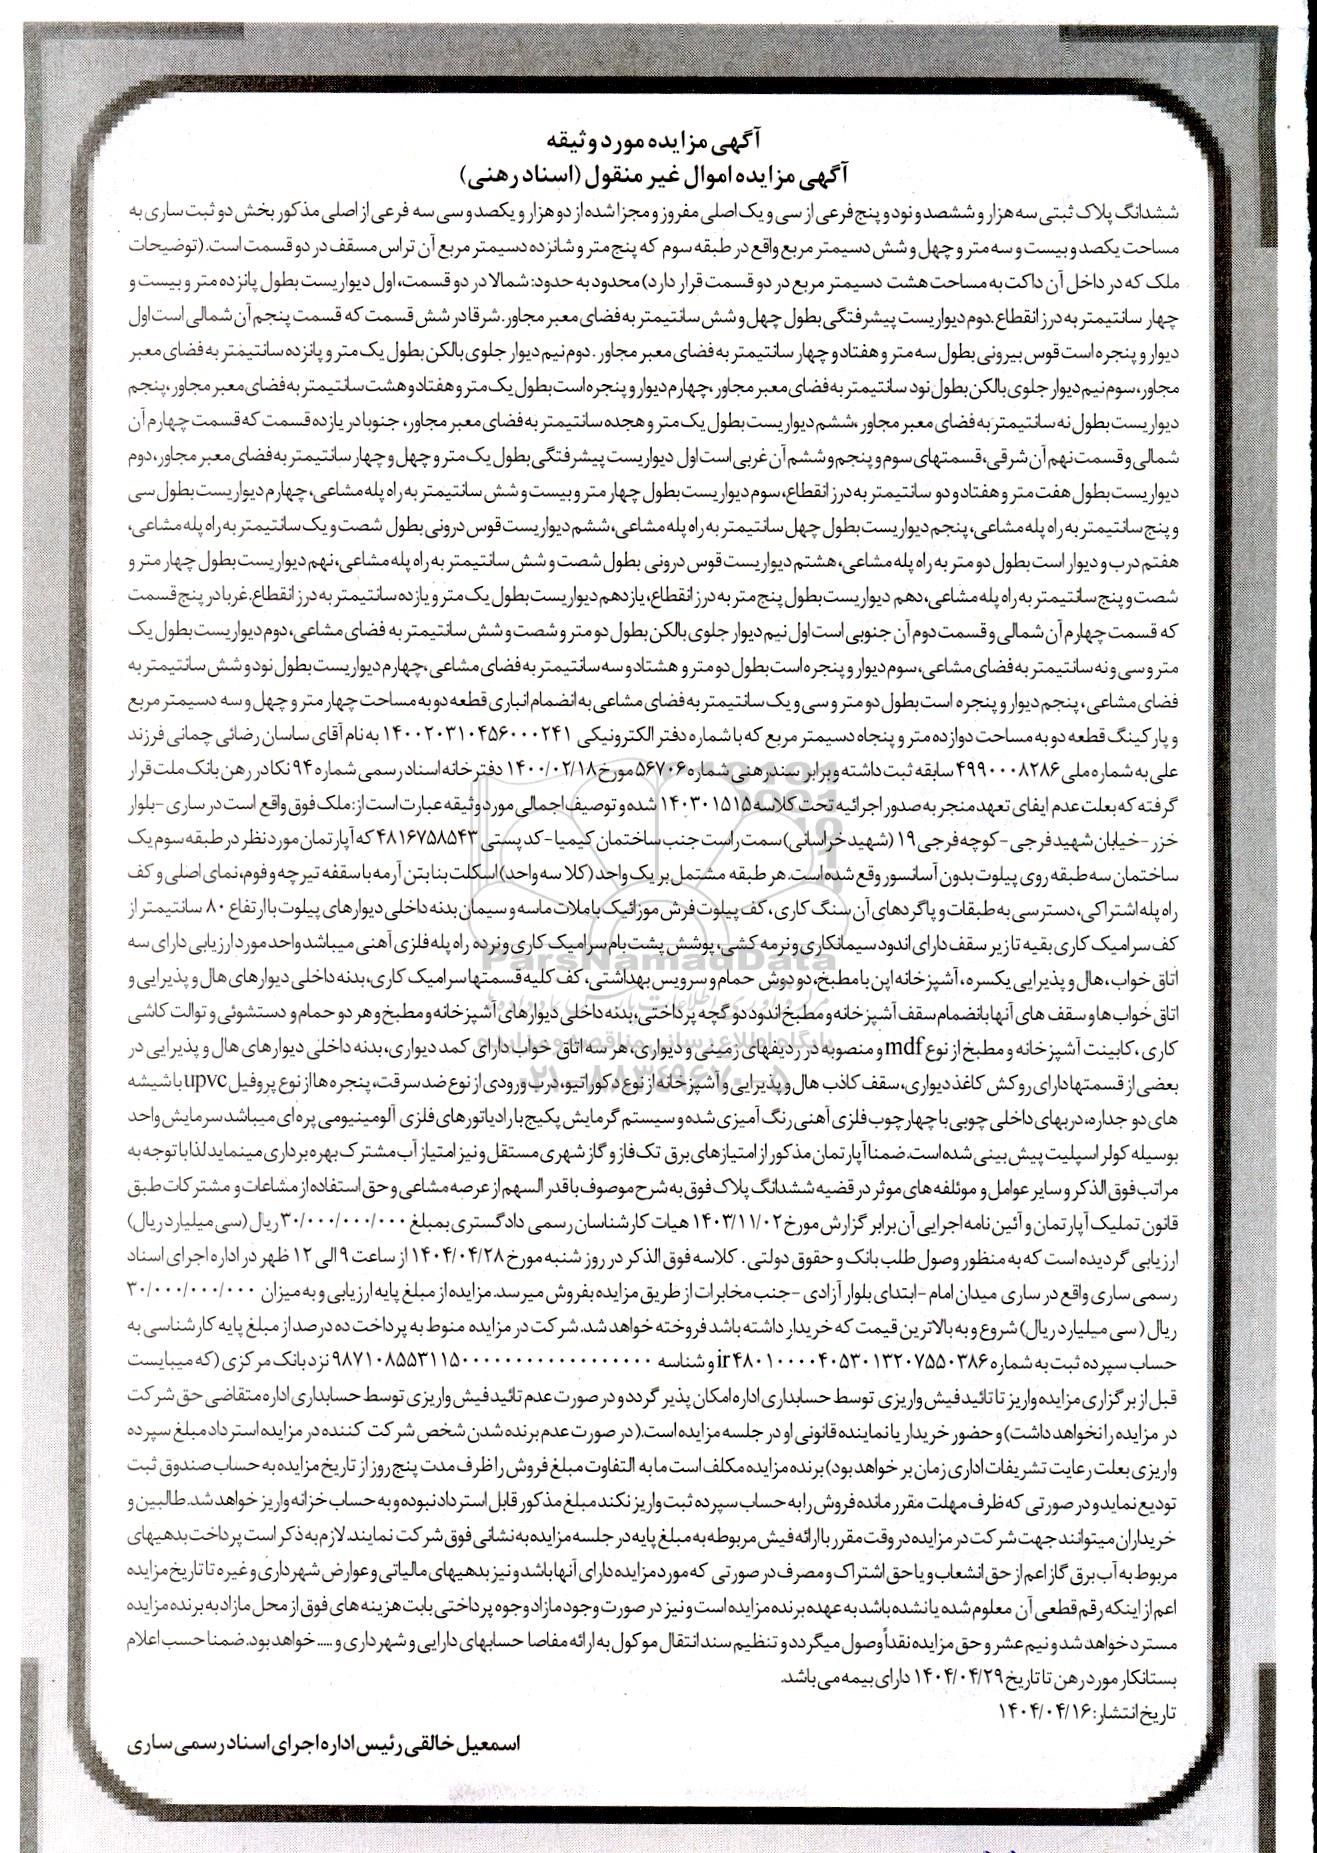 آگهی مزایده مورد وثیقه
آگهی مزایده اموال غیر منقول (اسناد رهنی)
ششدانگ پلاک ثبتی سه هزار و ششصد و نود و پنج فرعی از سی و یک اصلی مفروز و مجزا شده از دو هزار و یکصد و سی سه فرعی از اصلی مذکور بخش دو ثبت ساری به
مساحت یکصد و بیست و سه متر و چهل و شش دسیمتر مربع واقع در طبقه سوم که پنج متر و شانزده دسیمتر مربع آن تراس مسقف در دو قسمت است. (توضیحات
ملک که در داخل آن داکت به مساحت هشت دسیمتر مربع در دو قسمت قرار دارد) محدود به حدود: شمالا در دو قسمت، اول دیواریست بطول پانزده متر و بیست و
چهار سانتیمتر به درز انقطاع. دوم دیواریست پیشرفتگی بطول چهل و شش سانتیمتر به فضای معبر مجاور. شرقا در شش قسمت که قسمت پنجم آن شمالی است اول
دیوار و پنجره است قوس بیرونی بطول سه متر و هفتاد و چهار سانتیمتر به فضای معبر مجاور. دوم نیم دیوار جلوی بالکن بطول یک متر و پانزده سانتیمتر به فضای معبر
مجاور، سوم نیم دیوار جلوی بالکن بطول نود سانتیمتر به فضای معبر مجاور، چهارم دیوار و پنجره است بطول یک متر و هفتاد و هشت سانتیمتر به فضای معبر مجاور، پنجم
دیواریست بطول نه سانتیمتر به فضای معبر مجاور، ششم دیواریست بطول یک متر و هجده سانتیمتر به فضای معبر مجاور، جنوبا در یازده قسمت که قسمت چهارم آن
شمالی و قسمت نهم آن شرقی، قسمتهای سوم و پنجم و ششم آن غربی است اول دیواریست پیشرفتگی بطول یک متر و چهل و چهار سانتیمتر به فضای معبر مجاور، دوم
دیواریست بطول هفت متر و هفتاد و دو سانتیمتر به درز انقطاع، سوم دیواریست بطول چهار متر و بیست و شش سانتیمتر به راه پله مشاعی، چهارم دیواریست بطول سی
و پنج سانتیمتر به راه پله مشاعی، پنجم دیواریست بطول چهل سانتیمتر به راه پله مشاعی، ششم دیواریست قوس درونی بطول شصت و یک سانتیمتر به راه پله مشاعی،
هفتم درب و دیوار است بطول دو متر به راه پله مشاعی، هشتم دیواریست قوس درونی بطول شصت و شش سانتیمتر به راه پله مشاعی، نهم دیواریست بطول چهار متر و
شصت و پنج سانتیمتر به راه پله مشاعی، دهم دیواریست بطول پنج متر به درز انقطاع، یازدهم دیواریست بطول یک متر و یازده سانتیمتر به درز انقطاع. غربا در پنج قسمت
که قسمت چهارم آن شمالی و قسمت دوم آن جنوبی است اول نیم دیوار جلوی بالکن بطول دو متر و شصت و شش سانتیمتر به فضای مشاعی، دوم دیواریست بطول یک
متر و سی و نه سانتیمتر به فضای مشاعی، سوم دیوار و پنجره است بطول دو متر و هشتاد و سه سانتیمتر به فضای مشاعی، چهارم دیواریست بطول نود و شش سانتیمتر به
فضای مشاعی، پنجم دیوار و پنجره است بطول دو متر و سی و یک سانتیمتر به فضای مشاعی به انضمام انباری قطعه دو به مساحت چهار متر و چهل و سه دسیمتر مربع
و پارکینگ قطعه دو به مساحت دوازده متر و پنجاه دسیمتر مربع که با شماره دفتر الکترونیکی ۱۴۰۰۲۰۳۱۰۴۵۶۰۰۰۲۴۱ به نام آقای ساسان رضائی چمانی فرزند
علی به شماره ملی ۴۹۹۰۰۰۸۲۸۶ سابقه ثبت داشته و برابر سند رهنی شماره ۵۶۷۰۶ مورخ ۱۴۰۰/۰۲/۱۸ دفترخانه اسناد رسمی شماره ۹۴ نکا در رهن بانک ملت قرار
گرفته که بعلت عدم ایفای تعهد منجر به صدور اجرائیه تحت کلاسه ۱۴۰۳۰۱۵۱۵ شده و توصیف اجمالی مورد وثیقه عبارت است از: ملک فوق واقع است در ساری - بلوار
خزر - خیابان شهید فرجی - کوچه فرجی ۱۹ (شهید خراسانی) سمت راست جنب ساختمان کیمیا - کد پستی ۴۸۱۶۷۵۸۵۴۳ که آپارتمان مورد نظر در طبقه سوم یک
ساختمان سه طبقه روی پیلوت بدون آسانسور وقع شده است. هر طبقه مشتمل بر یک واحد (کلا سه واحد) اسکلت بنا بتن آرمه با سقفه تیرچه و فوم، نمای اصلی و کف
راه پله اشتراکی، دسترسی به طبقات و پاگردهای آن سنگ کاری، کف پیلوت فرش موزائیک با ملات ماسه و سیمان بدنه داخلی دیوارهای پیلوت با ارتفاع ۸۰ سانتیمتر از
کف سرامیک کاری بقیه تا زیر سقف دارای اندود سیمانکاری و نرمه کشی، پوشش پشت بام سرامیک کاری و نرده راه پله فلزی آهنی میباشد واحد مورد ارزیابی دارای سه
اتاق خواب، هال و پذیرایی یکسره، آشپزخانه اپن با مطبخ، دو دوش حمام و سرویس بهداشتی، کف کلیه قسمتها سرامیک کاری، بدنه داخلی دیوارهای هال و پذیرایی و
اتاق خواب ها و سقف های آنها بانضمام سقف آشپزخانه و مطبخ اندود دوگچه پرداختی، بدنه داخلی دیوارهای آشپزخانه و مطبخ و هر دو حمام و دستشوئی و توالت کاشی
کاری، کابینت آشپزخانه و مطبخ از نوع mdf و منصوبه در ردیفهای زمینی و دیواری، هر سه اتاق خواب دارای کمد دیواری، بدنه داخلی دیوارهای هال و پذیرایی در
بعضی از قسمتها دارای روکش کاغذ دیواری، سقف کاذب هال و پذیرایی و آشپزخانه از نوع دکوراتیو، درب ورودی از نوع ضد سرقت، پنجره ها از نوع پروفیل upvc با شیشه
های دو جداره، دربهای داخلی چوبی با چهارچوب فلزی آهنی رنگ آمیزی شده و سیستم گرمایش پکیج با رادیاتورهای فلزی آلومینیومی پره ای میباشد سرمایش واحد
بوسیله کولر اسپلیت پیش بینی شده است. ضمنا آپارتمان مذکور از امتیازهای برق تک فاز و گاز شهری مستقل و نیز امتیاز آب مشترک بهره برداری مینماید لذا با توجه به
مراتب فوق الذکر و سایر عوامل و موئلفه های موثر در قضیه ششدانگ پلاک فوق به شرح موصوف با قدر السهم از عرصه مشاعی و حق استفاده از مشاعات و مشترکات طبق
قانون تملیک آپارتمان و آئین نامه اجرایی آن برابر گزارش مورخ ۱۴۰۳/۱۱/۰۲ هیات کارشناسان رسمی دادگستری بمبلغ ۳۰/۰۰۰/۰۰۰/۰۰۰ ریال (سی میلیارد ریال)
ارزیابی گردیده است که به منظور وصول طلب بانک و حقوق دولتی. کلاسه فوق الذکر در روز شنبه مورخ ۱۴۰۴/۰۴/۲۸ از ساعت ۹ الی ۱۲ ظهر در اداره اجرای اسناد
رسمی ساری واقع در ساری میدان امام - ابتدای بلوار آزادی - جنب مخابرات از طریق مزایده بفروش میرسد. مزایده از مبلغ پایه ارزیابی و به میزان ۳۰/۰۰۰/۰۰۰/۰۰۰
ریال (سی میلیارد ریال) شروع و به بالاترین قیمت که خریدار داشته باشد فروخته خواهد شد. شرکت در مزایده منوط به پرداخت ده درصد از مبلغ پایه کارشناسی به
حساب سپرده ثبت به شماره ir۴۸۰۱۰۰۰۰۴۰۵۳۰۱۳۲۰۷۵۵۰۳۸۶ و شناسه ۹۸۷۱۰۸۵۵۳۱۱۵۰۰۰۰۰۰۰۰۰۰۰۰۰۰۰۰۰۰ نزد بانک مرکزی (که میبایست
قبل از برگزاری مزایده واریز تا تائید فیش واریزی توسط حسابداری اداره امکان پذیر گردد و در صورت عدم تائید فیش واریزی توسط حسابداری اداره متقاضی حق شرکت
در مزایده را نخواهد داشت) و حضور خریدار یا نماینده قانونی او در جلسه مزایده است. (در صورت عدم برنده شدن شخص شرکت کننده در مزایده استرداد مبلغ سپرده
واریزی بعلت رعایت تشریفات اداری زمان بر خواهد بود) برنده مزایده مکلف است ما به التفاوت مبلغ فروش را ظرف مدت پنج روز از تاریخ مزایده به حساب صندوق ثبت
تودیع نماید و در صورتی که ظرف مهلت مقرر مانده فروش را به حساب سپرده ثبت واریز نکند مبلغ مذکور قابل استرداد نبوده و به حساب خزانه واریز خواهد شد. طالبین و
خریداران میتوانند جهت شرکت در مزایده در وقت مقرر با ارائه فیش مربوطه به مبلغ پایه در جلسه مزایده به نشانی فوق شرکت نمایند. لازم به ذکر است پرداخت بدهیهای
مربوط به آب برق گاز اعم از حق انشعاب و یا حق اشتراک و مصرف در صورتی که مورد مزایده دارای آنها باشد و نیز بدهیهای مالیاتی و عوارض شهرداری و غیره تا تاریخ مزایده
اعم از اینکه رقم قطعی آن معلوم شده یا نشده باشد به عهده برنده مزایده است و نیز در صورت وجود مازاد وجوه پرداختی بابت هزینه های فوق از محل مازاد به برنده مزایده
مسترد خواهد شد و نیم عشر و حق مزایده نقداً وصول میگردد و تنظیم سند انتقال موکول به ارائه مفاصا حسابهای دارایی و شهرداری و ..... خواهد بود. ضمنا حسب اعلام
بستانکار مورد رهن تا تاریخ ۱۴۰۴/۰۴/۲۹ دارای بیمه می باشد.
تاریخ انتشار: ۱۴۰۴/۰۴/۱۶
اسمعیل خالقی رئیس اداره اجرای اسناد رسمی ساری
ParsNamadData
پایگاه اطلاع رسانی مناقصه و مزایده